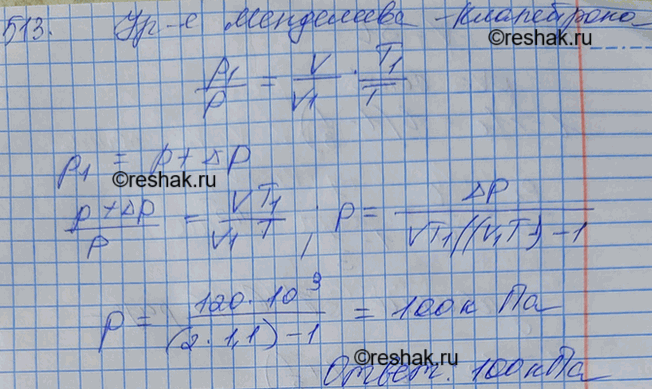 513. Ур-е Менделеева - Клапейрона
©reshak.ru
p₁/p = V/V₁ · T₁/T
p₁ = p + Δp
©reshak.ru
(p + Δp)/p = VT₁/V₁T ; p = Δp/(VT₁/(V₁T) - 1)
p = 120 · 10³/((2 · 1,1) - 1) = 100к Па
©reshak.ru
Ответ: 100кПа